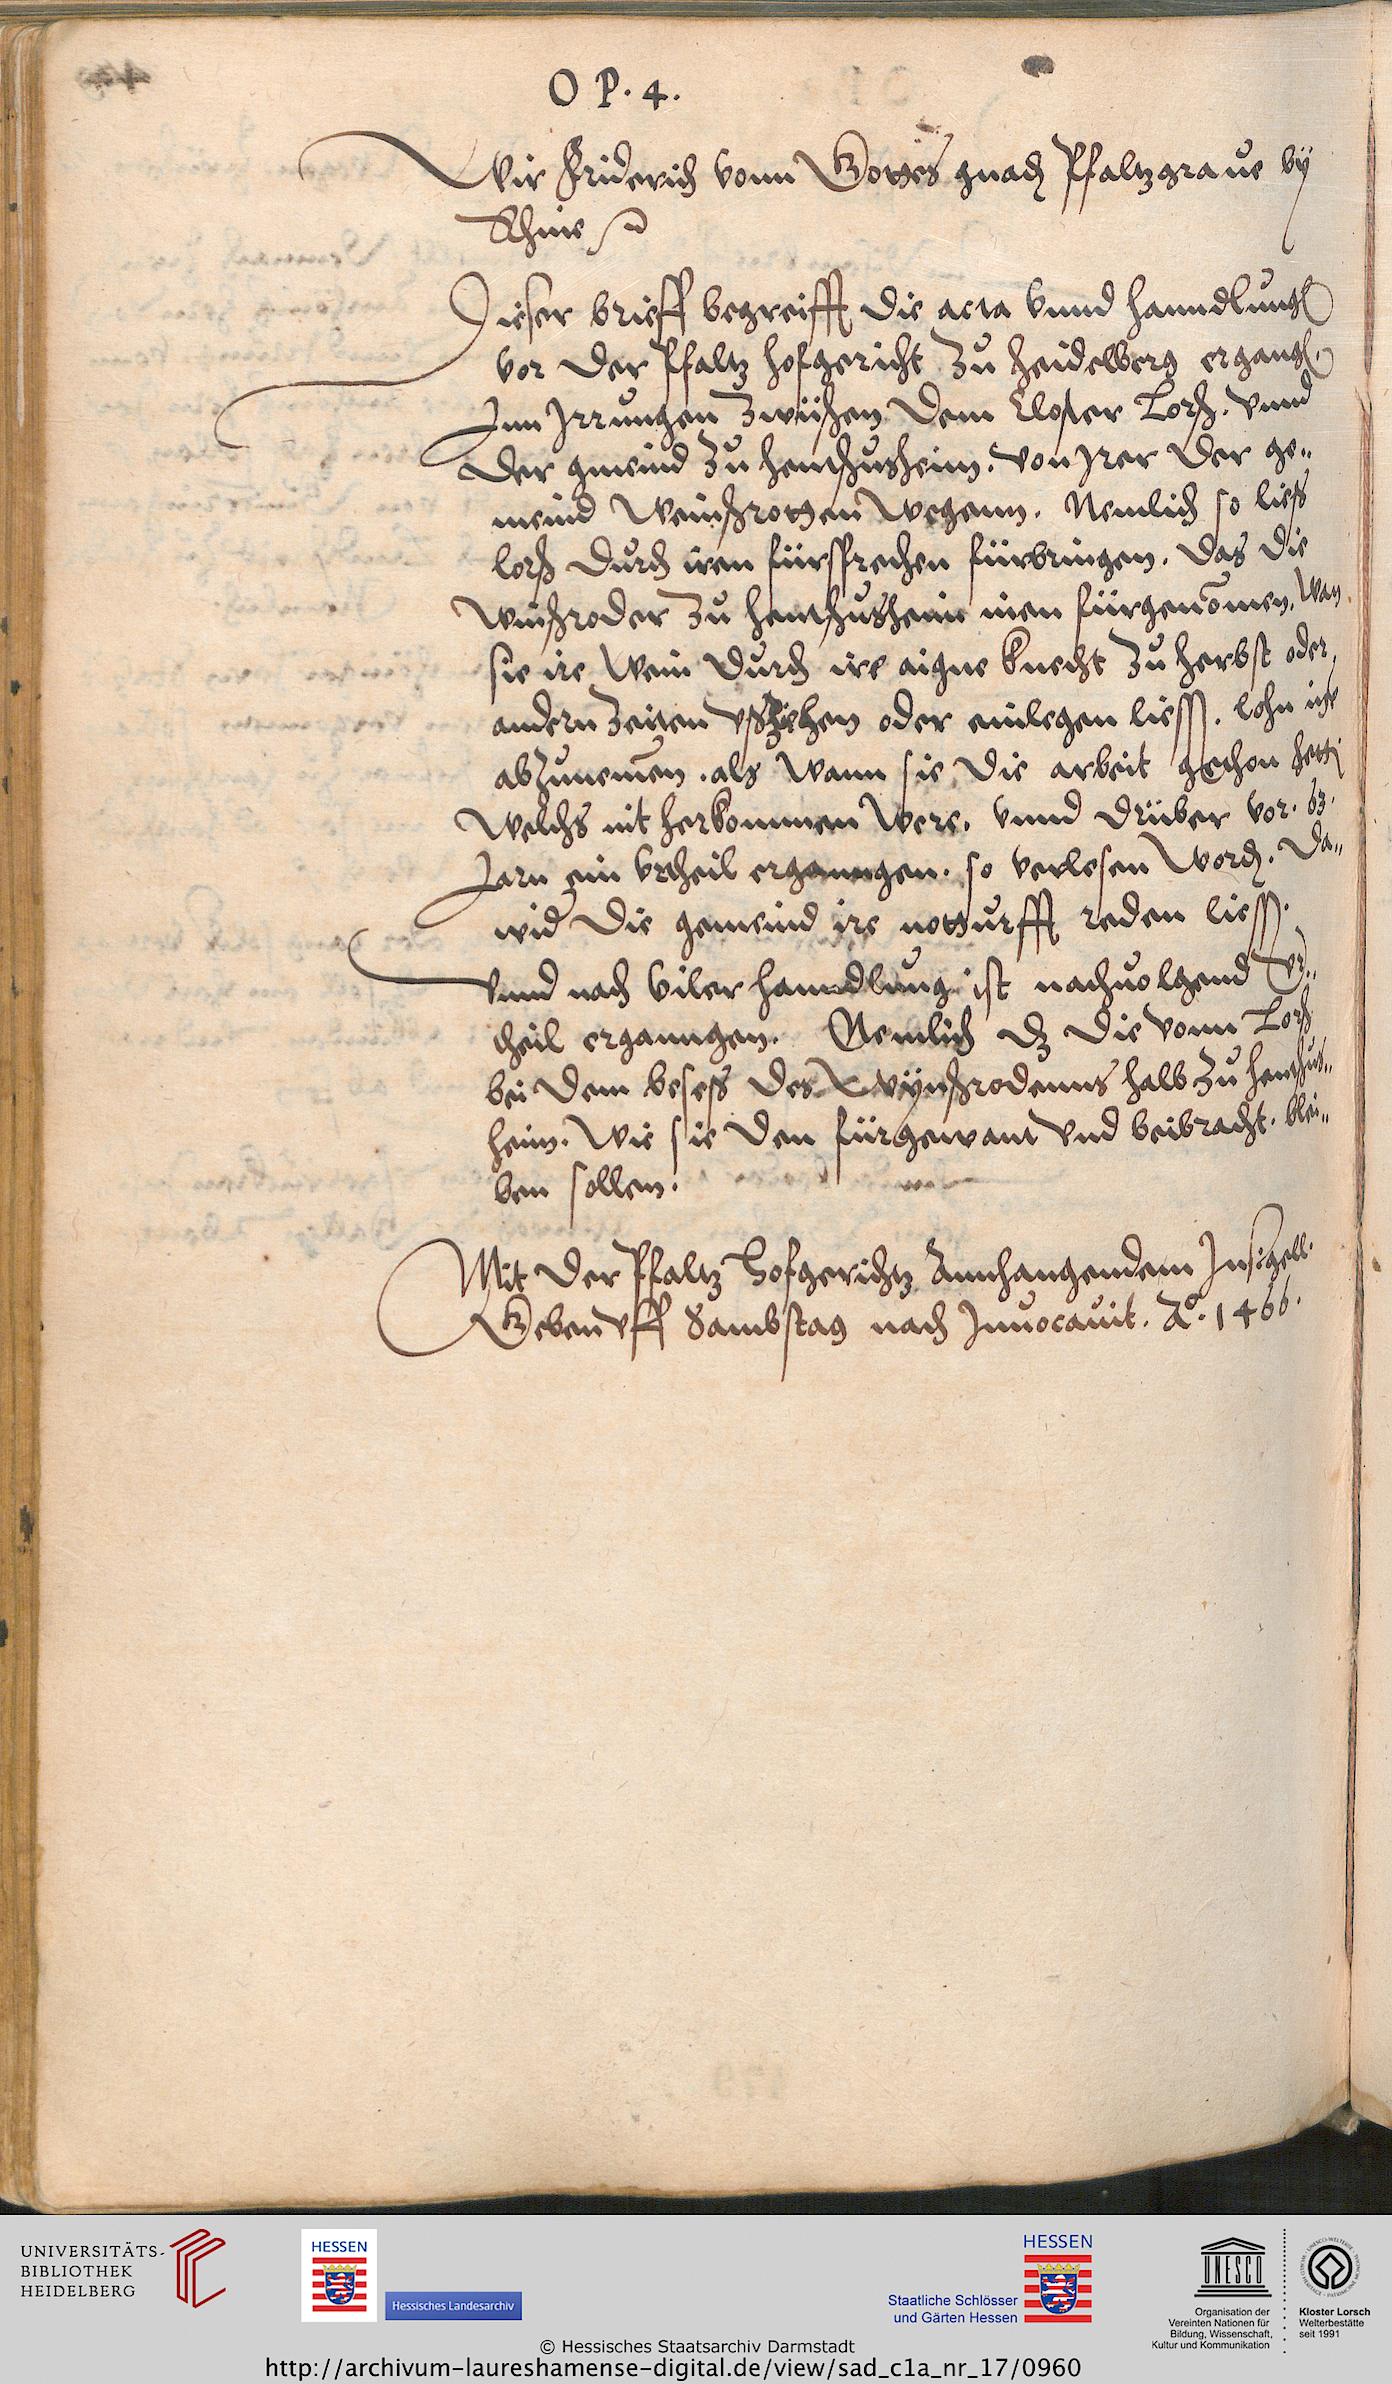 O P. 4.
Wir Friderich vonn Gottes gnad Pfaltzgraue by
Rhine
Dieser brieff begreifft die acta vnnd hanndlung
vor der Pfaltz hofgericht zu heidelberg ergang
Inn Irrungen zwüschen dem Closter Lorß. vnnd
der gmeind zu hentschusheim. von Irer der ge„
meind weinschrotten wegenn. Nemlich so ließ
lorß durch iren fürsprechen fürbringen. das die
winschroder zu hentschusheim inen fürgenomen. wan
sie ire wein durch ire aigne knecht zu herbst oder
andern zeiten vßziehen oder einlegen liessen. lohn
abzunemen. als wann sie die arbeit gethon hetten
welchs nit herkommen were. vnnd drüber vor. 63.
Jarn ein vrtheil erganngen. so verlesen word. Da„
wid die gemeind ire notturfft reden liess.
vnnd nach viler hanndlung ist nachuolgend vr„
theil erganngen. Nemlich dz die vonn Lorß
bei dem beseß des wynschrodenns halb zu hentschus„
heim. wie sie den fürgewant vnd beibracht. blei„
ben sollen.
Mit der Pfaltz Hofgerichtz Annhangendem Insigell.
Geben vff Sambstag nach Inuocauit. Ao. 1466.
UNIVERSITÄTS-
BIBLIOTHEK
HEIDELBERG
HESSEN
Hessisches Landesarchiv
HESSEN
Staatliche Schlösser
und Gärten Hessen
UNESCO
Organisation der
Vereinten Nationen für
Bildung, Wissenschaft,
Kultur und Kommunikation
Kloster Lorsch
Welterbestätte
seit 1991
© Hessisches Staatsarchiv Darmstadt
http://archivum-laureshamense-digital.de/view/sad_c1a_nr_17/0960